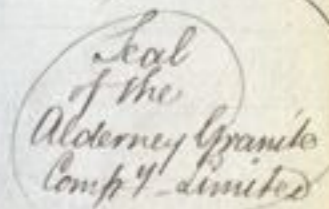 Seal
of the
Alderney Granite
Compy Limited